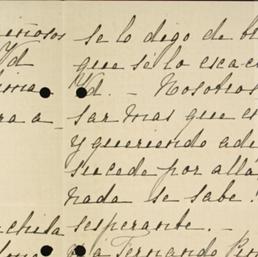 eñosos
Yd
ra a-
chila
se lo digo de
que sélo esca
Yd. - Nosotros
sar mas que e
y queriendo ade
sucede por allá
nada se sabe!
sesperante. -
Fernando